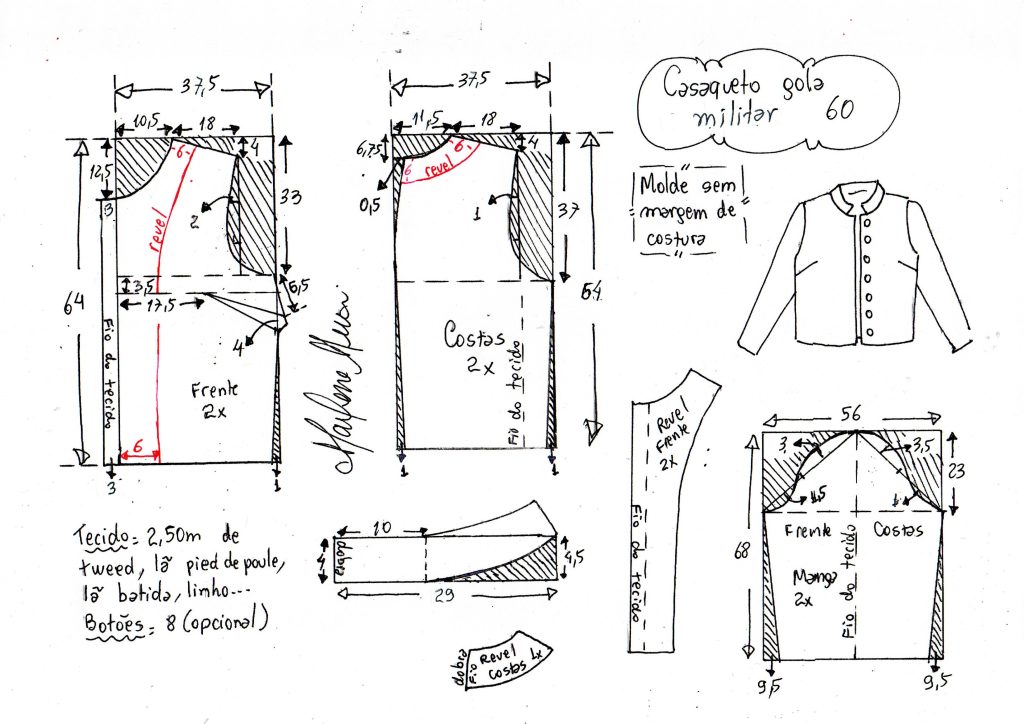 Casaqueto gola
militar 60
Molde sem
margem de
costura
37,5
10,5
18
4
12,5
33
3
-6-
2
revel
3,5
17,5
5,5
4
64
Fio do tecido
Frente
2x
6
3
1
Marlene Mukai
37,5
11,5
18
4
6,75
6
revel
6
0,5
1
37
64
Costas
2x
Fio do tecido
1
1
Revel
Frente
2x
Fio do tecido
56
3
3,5
23
1,5
1
Frente
Costas
68
Manga
2x
Fio do tecido
9,5
9,5
10
4
dobra
4,5
29
dobra
Fio
Revel
costas 1x
Tecido = 2,50m de
tweed, lã pied de poule,
lã batida, linho...
Botões = 8 (opcional)